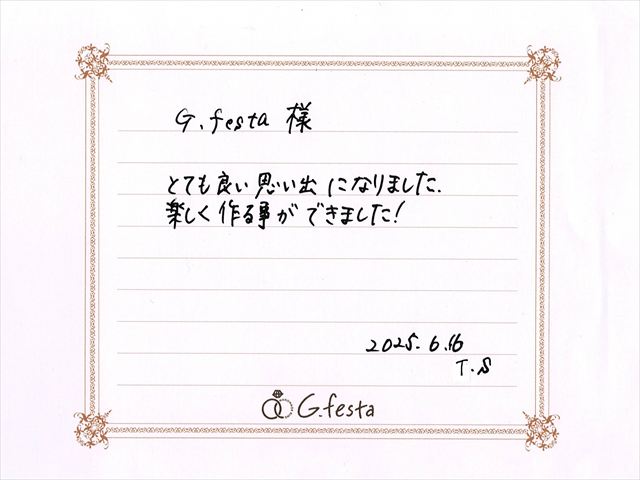 G.festa 様
とても良い思い出になりました.
楽しく作る事ができました!
2025.6.16
T.S
G.festa